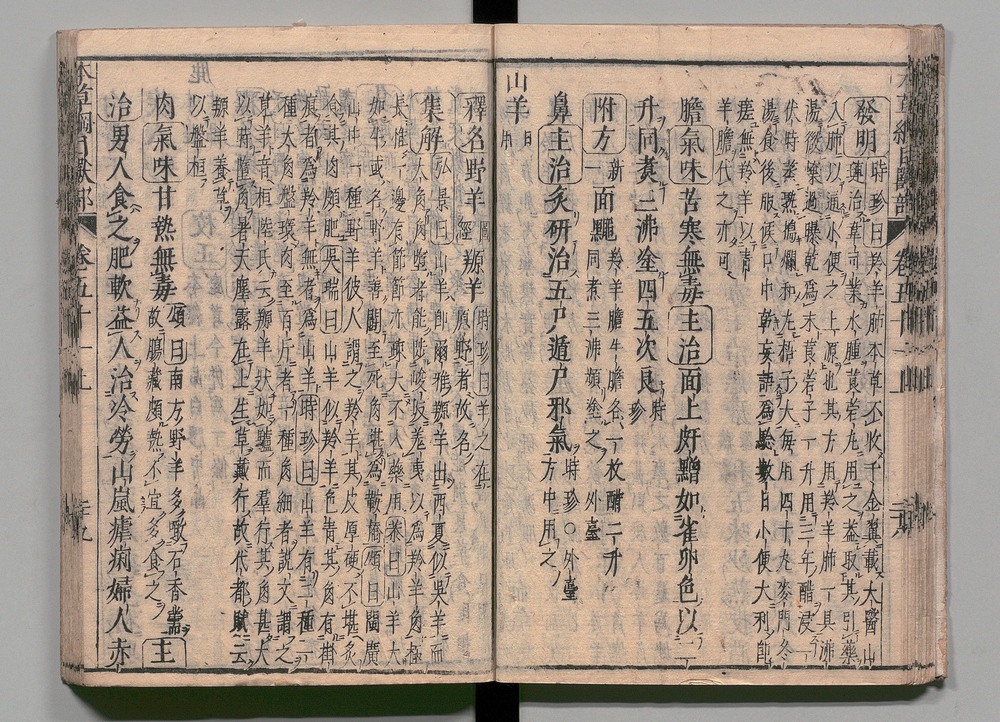 發明 時珍曰羚羊肺本草不收千金翼載太醫山
連治韋司業水腫莨菪丸用之蓋取其引藥
入肺以通小便之上源也其方用羚羊肺一具沸
湯微煠過曝乾爲末莨菪子一升用三年醋浸一
伏時蒸熟搗爛和丸梧子大每用四十丸麥門冬
湯食後服候口中乾妄語爲驗數日小便大利即
瘥無羚羊以青
羊膽代之亦可
膽氣味苦寒無毒主治面上皯䵳如雀卵色以
升同煮二沸塗四五次良 時珍
附方 新一 面䵳 羚羊膽牛膽各一枚醋二升
同煮三沸頻塗之 外臺
鼻主治炙研治五尸遁尸邪氣 時珍○外臺
方中用之
山羊 日用
釋名野羊 圖經 羱羊 時珍曰羊之在
原野者故名
集解 弘景曰山羊即爾雅羱羊出西夏似吳羊而
大角角墮者能陟峻坂羗夷以爲羚羊角極
長惟一邊有節節亦疎大不入藥用恭曰山羊大
如牛或名野羊善鬪至死角堪爲鞍橋頌曰閩廣
山中一種野羊彼人謂之羚羊其皮厚硬不堪炙
食其肉頗肥吳瑞曰山羊似羚羊色青其角有掛
痕者爲羚羊無者爲山羊時珍曰山羊有二種一
種大角盤環肉至百斤者一種角細者說文謂之
莧羊音桓陸氏云羱羊狀如驢而羣行其角甚大
以時墮角暑天塵露在上生草戴行故代都賦云
羱羊養草
以盤桓
肉氣味甘熱無毒 頌曰南方野羊多噉石香薷
故腸臟頗熱不宜多食之 主
治男人食之肥軟益人治冷勞山嵐瘧痢婦人赤